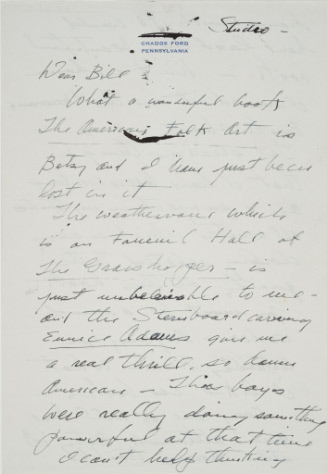 Studio -
CHADDS FORD
PENNSYLVANIA
Dear Bill
What a wonderful book
The American Folk Art is
Betsy and I have just been
lost in it
The weathervane which
is on Faneuil Hall of
The Grasshopper - is
just unbelievable to me -
and the Sternboard carving
Eunice Adams gave me
a real thrill, so damn
American - Those boys
were really doing something
powerful at that time
I can't help thinking